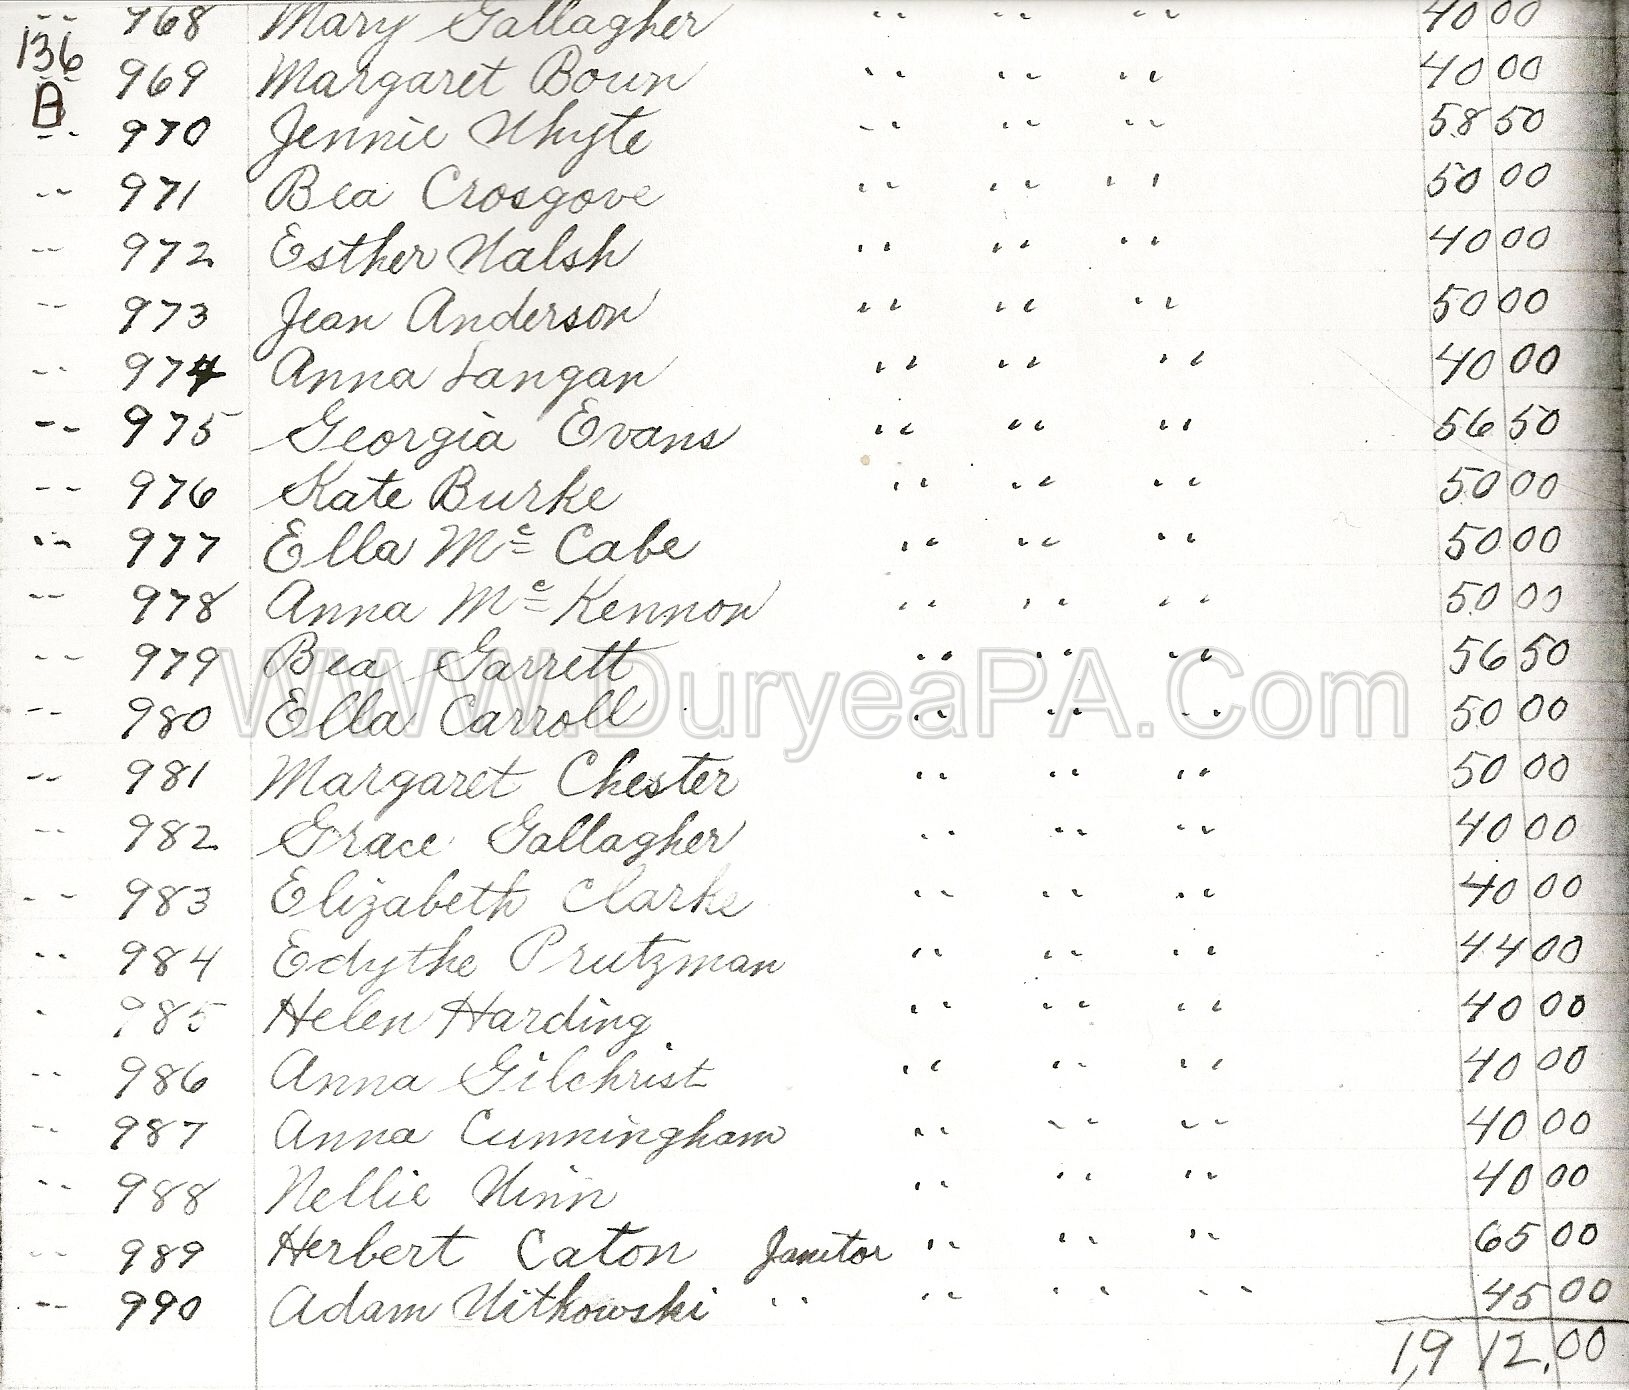 -- 968 Mary Gallagher " " " 40 00
136
-- 969 Margaret Boun " " " 40 00
B
-- 970 Jennie Whyte " " " 58 50
-- 971 Bea Crosgove " " " 50 00
-- 972 Esther Walsh " " " 40 00
-- 973 Jean Anderson " " " 50 00
-- 974 Anna Langan " " " 40 00
-- 975 Georgia Evans " " " 56 50
-- 976 Kate Burke " " " 50 00
-- 977 Ella Mc Cabe " " " 50 00
-- 978 Anna Mc Kennon " " " 50 00
-- 979 Bea Garrett " " " 56 50
WWW.DuryeaPA.Com
-- 980 Ella Carroll " " " 50 00
-- 981 Margaret Chester " " " 50 00
-- 982 Grace Gallagher " " " 40 00
-- 983 Elizabeth Clarke " " " 40 00
-- 984 Edythe Prutzman " " " 44 00
- 985 Helen Harding " " " 40 00
-- 986 Anna Gilchrist " " " 40 00
-- 987 Anna Cunningham " " " 40 00
-- 988 Nellie Winn " " " 40 00
-- 989 Herbert Caton Janitor " " " 65 00
-- 990 Adam Witkowski " " " " 45 00
1,912.00